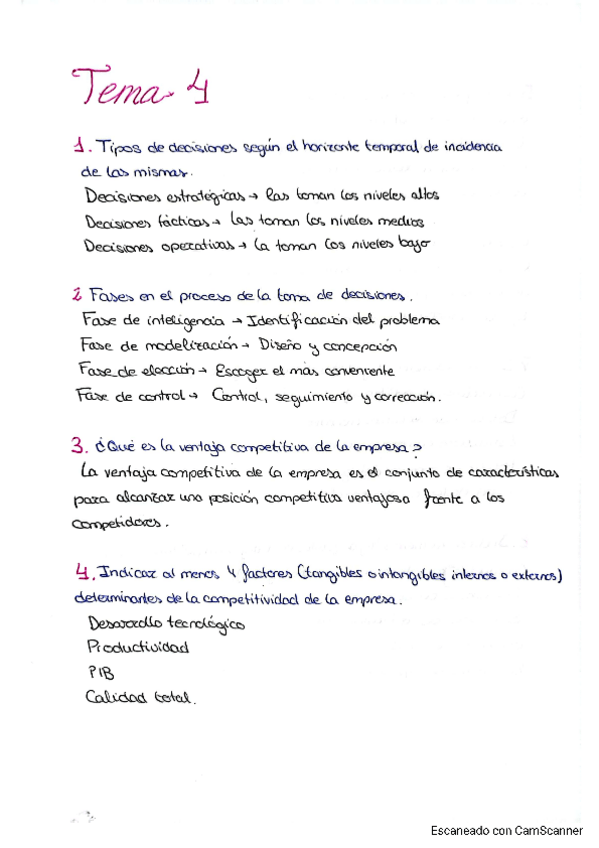 Tema 4
1. Tipos de decisiones según el horizonte temporal de incidencia
de las mismas.
Decisiones estratégicas → las toman los niveles altos
Decisiones tácticas → Las toman los niveles medios
Decisiones operativas → La toman los niveles bajo
2 Fases en el proceso de la toma de decisiones.
Fase de inteligencia → Identificación del problema
Fase de modelización → Diseño y concepción
Fase de elección → Escoger el mas conveniente
Fase de control → Control, seguimiento y corrección.
3. ¿Qué es la ventaja competitiva de la empresa?
La ventaja competitiva de la empresa es el conjunto de características
para alcanzar una posición competitiva ventajosa frente a los
competidores.
4. Indicar al menos 4 factores (tangibles o intangibles internos o externos)
determinantes de la competitividad de la empresa.
Desarrollo tecnológico
Productividad
PIB
Calidad total.
Escaneado con CamScanner